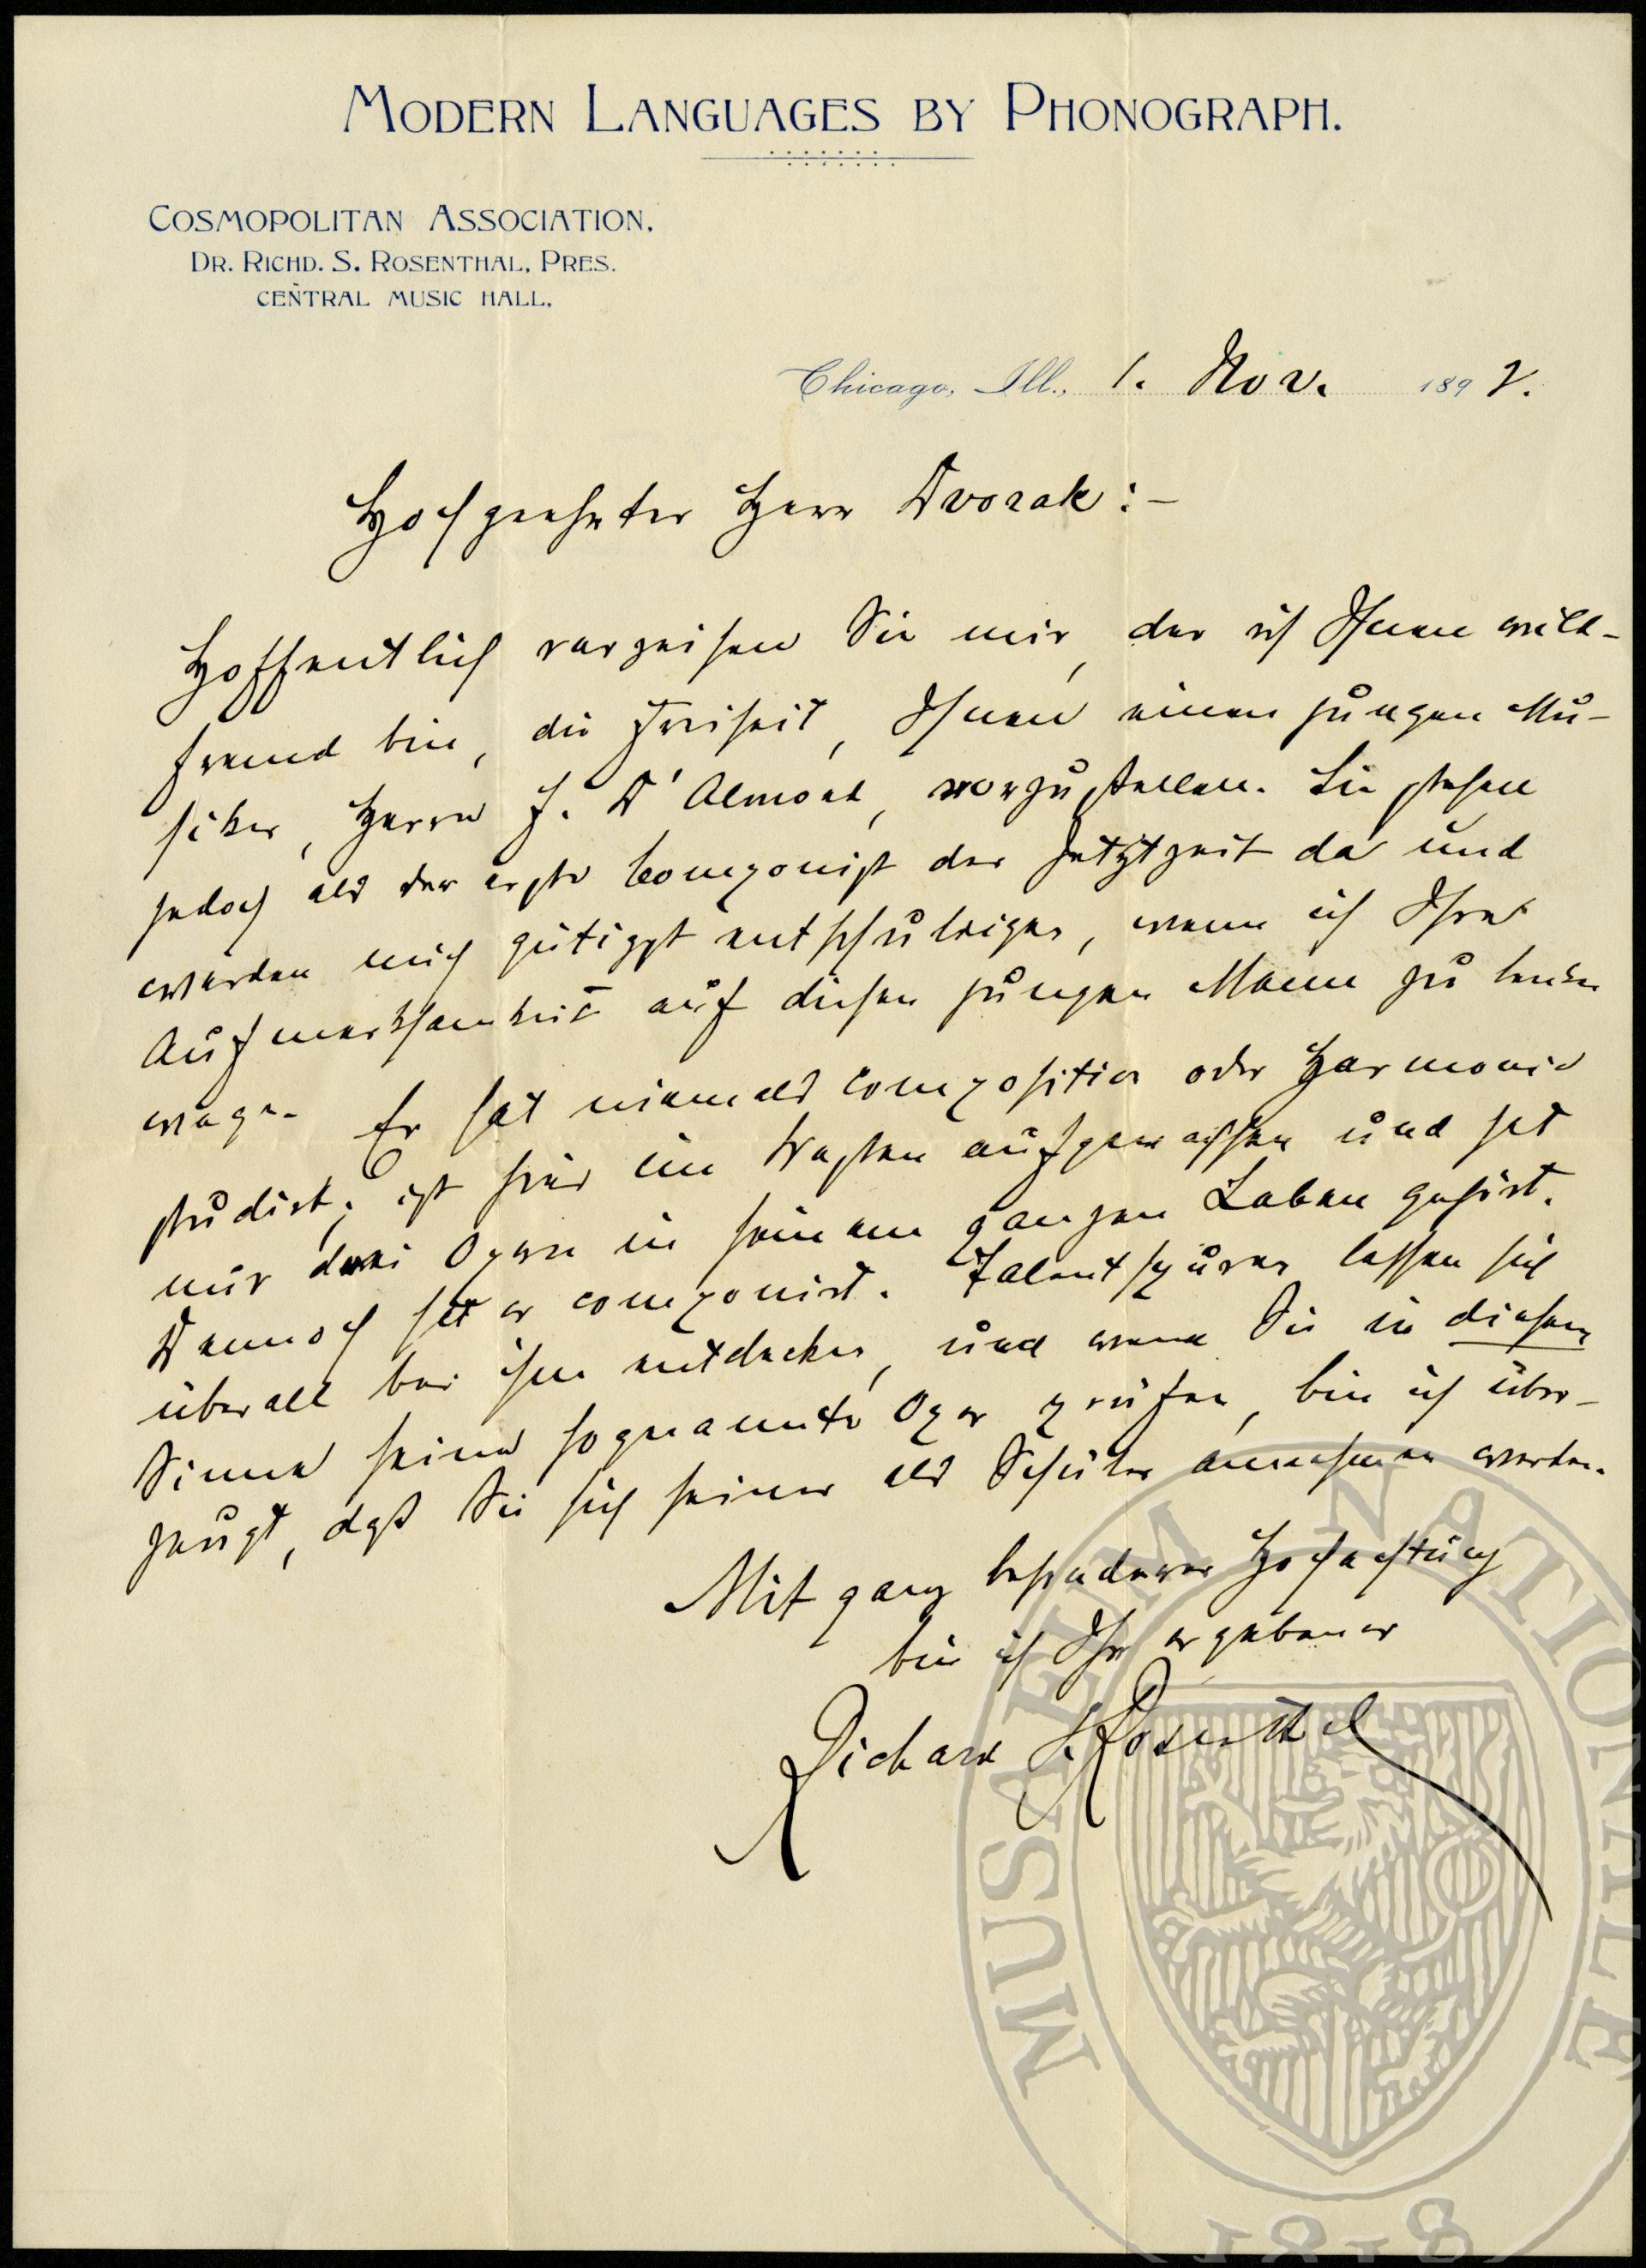 MODERN LANGUAGES BY PHONOGRAPH.
COSMOPOLITAN ASSOCIATION.
DR. RICHD. S. ROSENTHAL, PRES.
CENTRAL MUSIC HALL.
Chicago, Ill., 1. Nov. 1892.
Hochgeehrter Herr Dvorak:–
Hoffentlich verzeihen Sie mir, der ich Ihnen wild-
fremd bin, die Freiheit, Ihnen einen jungen Mu-
siker, Herrn J. D'Almont, vorzustellen. Sie stehen
jedoch als der erste Componist der Jetztzeit da und
werden mich gütigst entschuldigen, wenn ich Ihre
Aufmerksamkeit auf diesen jungen Mann zu lenken
wage. Er hat niemals Composition oder Harmonie
studirt; ist hier im Westen aufgewachsen und hat
nur drei Opern in seinem ganzen Leben gehört.
Dennoch hat er componirt. Talentspuren lassen sich
überall bei ihm entdecken, und wenn Sie in diesem
Sinne seine sogenannte Oper prüfen, bin ich über-
zeugt, daß Sie sich seiner als Schüler annehmen werden.
Mit ganz besonderer Hochachtung
bin ich Ihr ergebener
Richard S. Rosenthal
MUSAEUM NATIONALE
1818